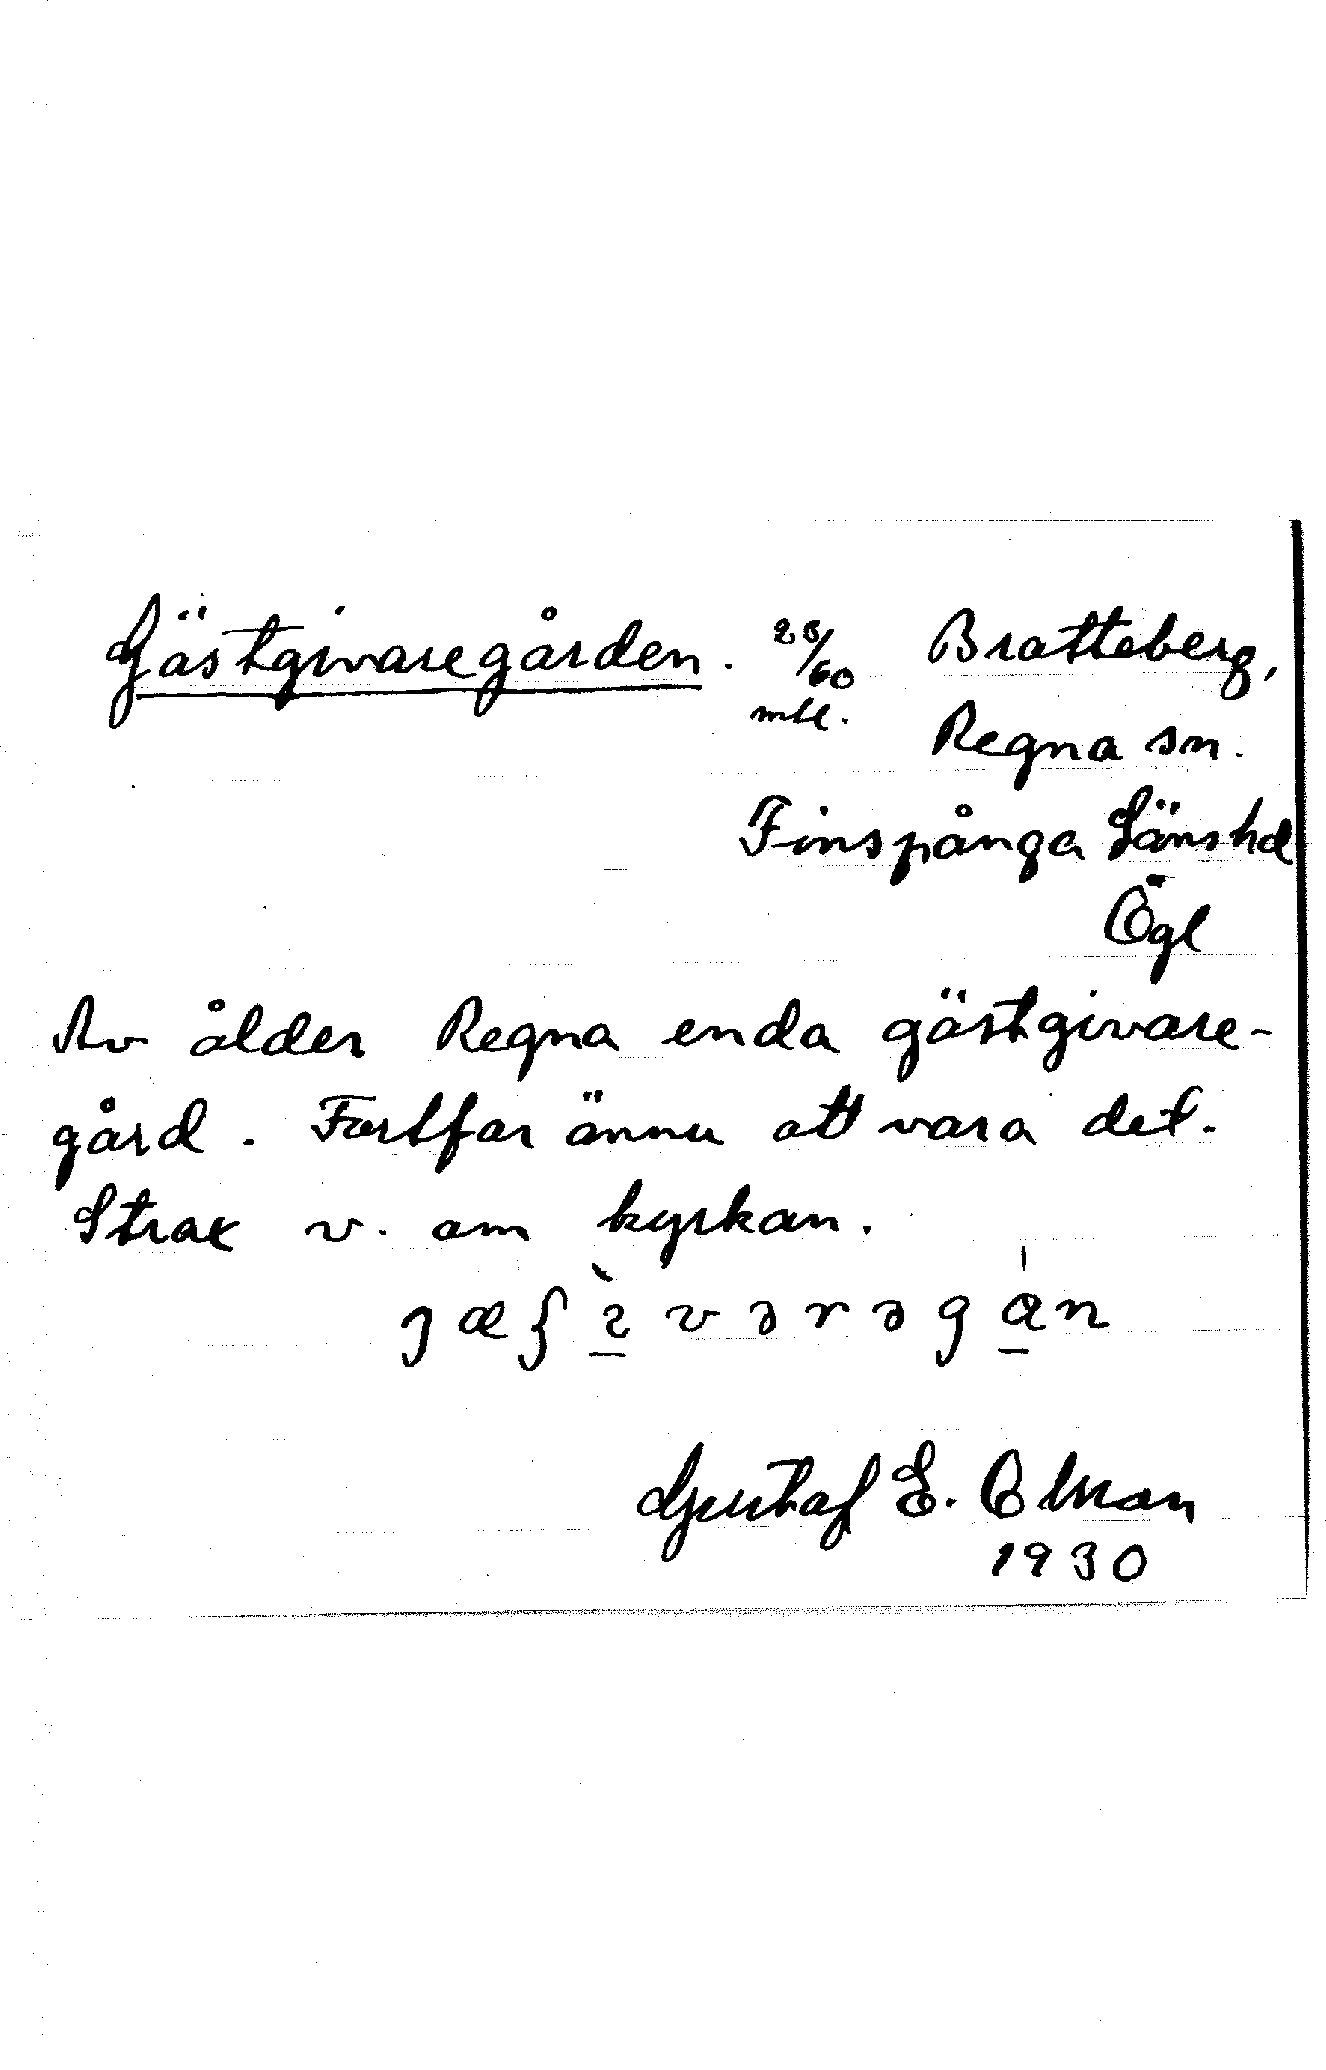 Gästgivaregården. 28/60 mtl. Bratteberg,
Regna sn.
Finspånga Länshd
Ögl
Av ålder Regna enda gästgivare-
gård. Fortfar ännu att vara det.
Strax v. om kyrkan.
Gustaf E. Elman
1930